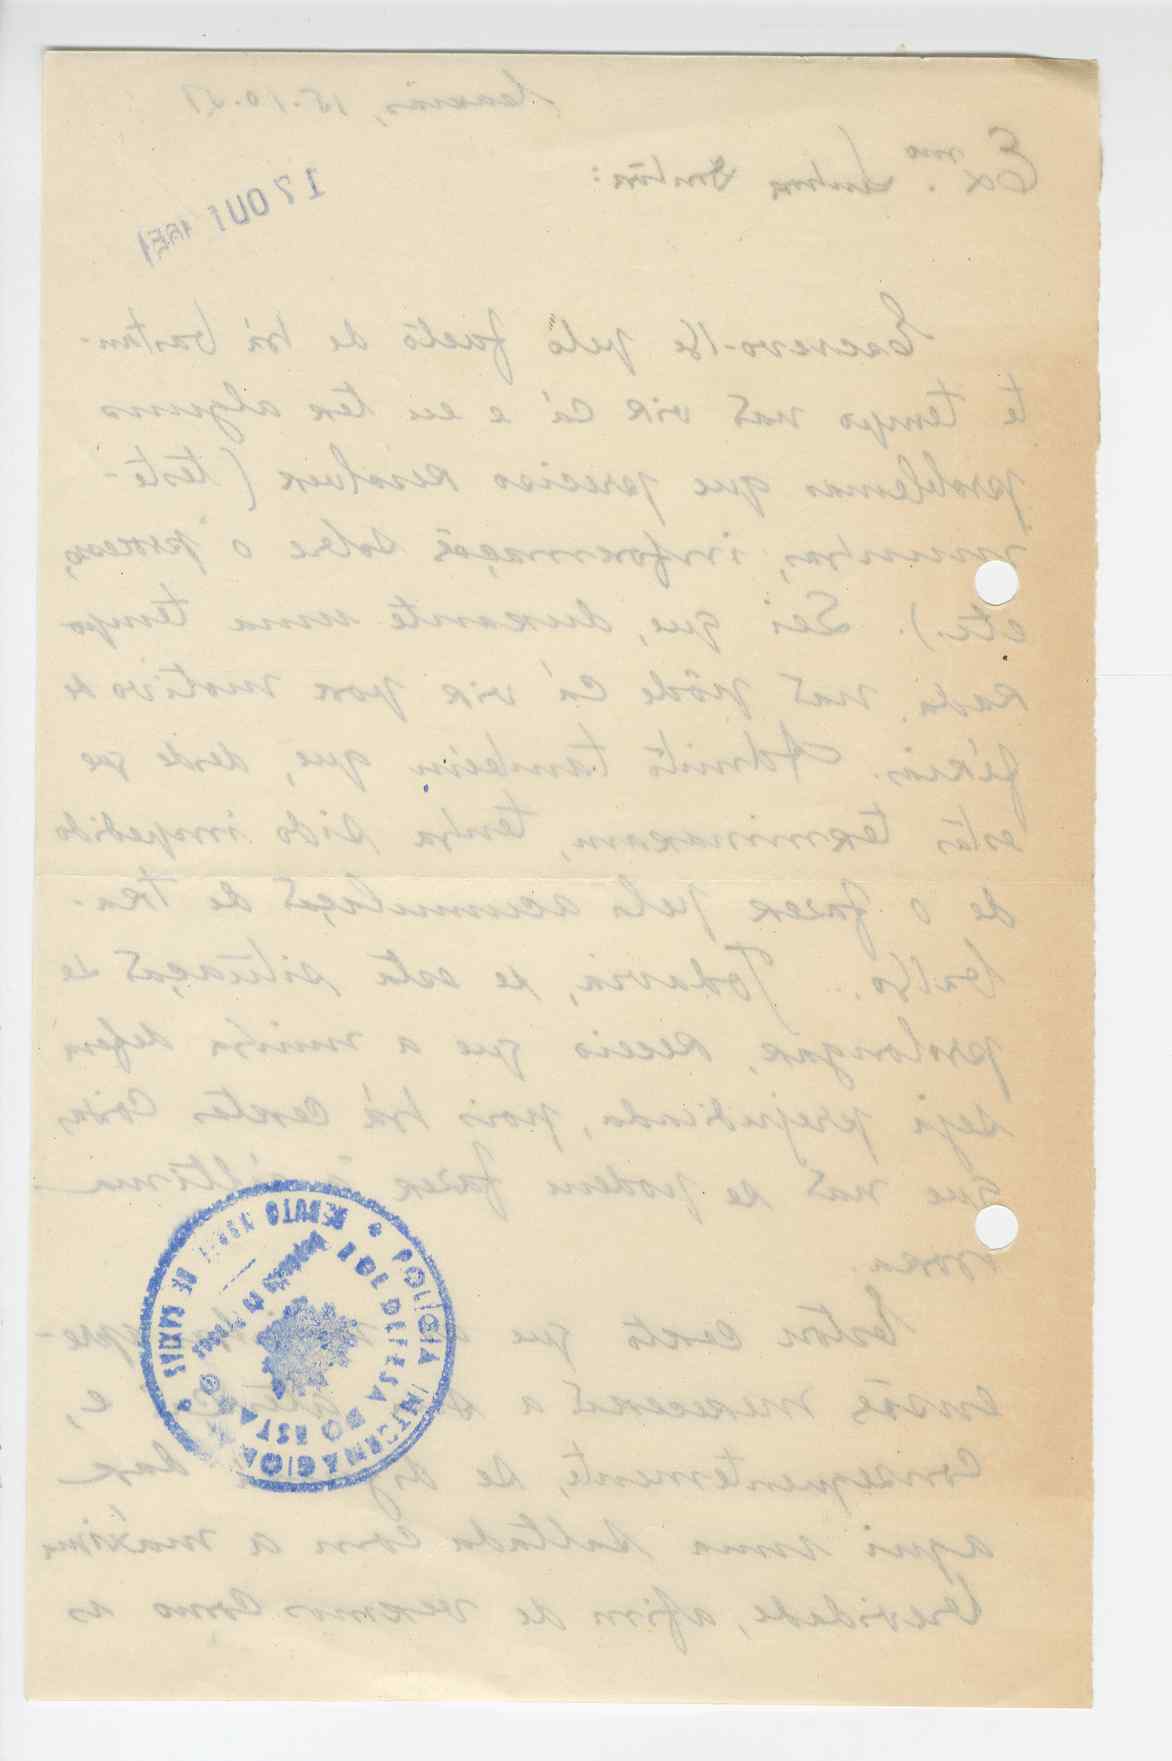 Caxias, 15.10.51
Ex.mo Senhor Doutor:
17 OUT 1951
Escrevo-lhe pelo facto de há bastan-
te tempo não vir cá e eu ter alguns
problemas que preciso resolver (teste-
munhas, informações sobre o processo,
etc.). Sei que, durante uma tempo
rada, não pôde cá vir por motivo de
férias. Admito também que, desde que
estas terminaram, tenha sido impedido
de o fazer pela acumulação de tra-
balho... Todavia, se esta situação se
prolongar, receio que a minha defesa
seja prejudicada, pois há certas coisas
que não se podem fazer à última
hora.
Estou certo que
ensões merecerão a
consequentemente, se dar
aqui uma saltada com a máxima
brevidade, afim de vermos como as
POLICIA INTERNACIONAL
E DE DEFESA DO ESTADO
REDUTO NORTE DE CAXIAS